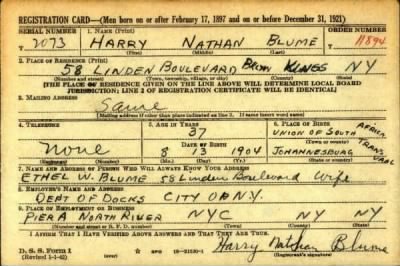 REGISTRATION CARD—(Men born on or after February 17, 1897 and on or before December 31, 1921)
SERIAL NUMBER 1. NAME (Print) ORDER NUMBER
T 2073 HARRY NATHAN BLUME 11894
(First) (Middle) (Last)
2. PLACE OF RESIDENCE (Print)
58 LINDEN BOULEVARD BKLYN KINGS NY
(Number and street) (Town, township, village, or city) (County) (State)
[THE PLACE OF RESIDENCE GIVEN ON THE LINE ABOVE WILL DETERMINE LOCAL BOARD
JURISDICTION; LINE 2 OF REGISTRATION CERTIFICATE WILL BE IDENTICAL]
3. MAILING ADDRESS
Same
[Mailing address if other than place indicated on line 2. If same insert word same]
4. TELEPHONE 5. AGE IN YEARS 6. PLACE OF BIRTH
37 UNION OF SOUTH AFRICA
DATE OF BIRTH JOHANNESBURG TRANSVAAL
None 8 13 1904
(Exchange) (Number) (Mo.) (Day) (Yr.) (Town or county) (State or country)
7. NAME AND ADDRESS OF PERSON WHO WILL ALWAYS KNOW YOUR ADDRESS
ETHEL W. BLUME 58 Linden Boulevard Wife
8. EMPLOYER'S NAME AND ADDRESS
DEPT OF DOCKS CITY OF N.Y.
9. PLACE OF EMPLOYMENT OR BUSINESS
PIER A NORTH RIVER NYC NY NY
(Number and street or R. F. D. number) (Town) (County) (State)
I AFFIRM THAT I HAVE VERIFIED ABOVE ANSWERS AND THAT THEY ARE TRUE.
D. S. S. Form 1
(Revised 1-1-42) (over) 16—21630-1 Harry Nathan Blume
(Registrant's signature)